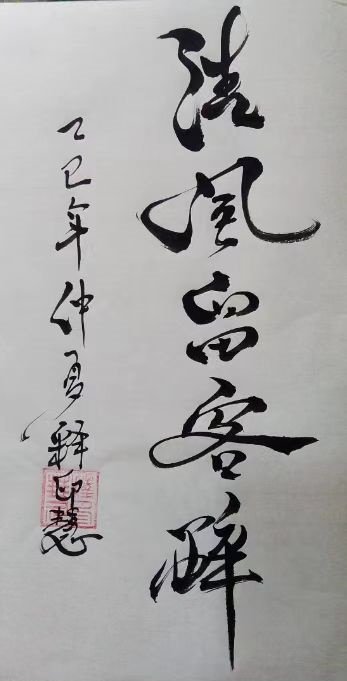 清風留客醉
乙巳年仲夏釋印慧